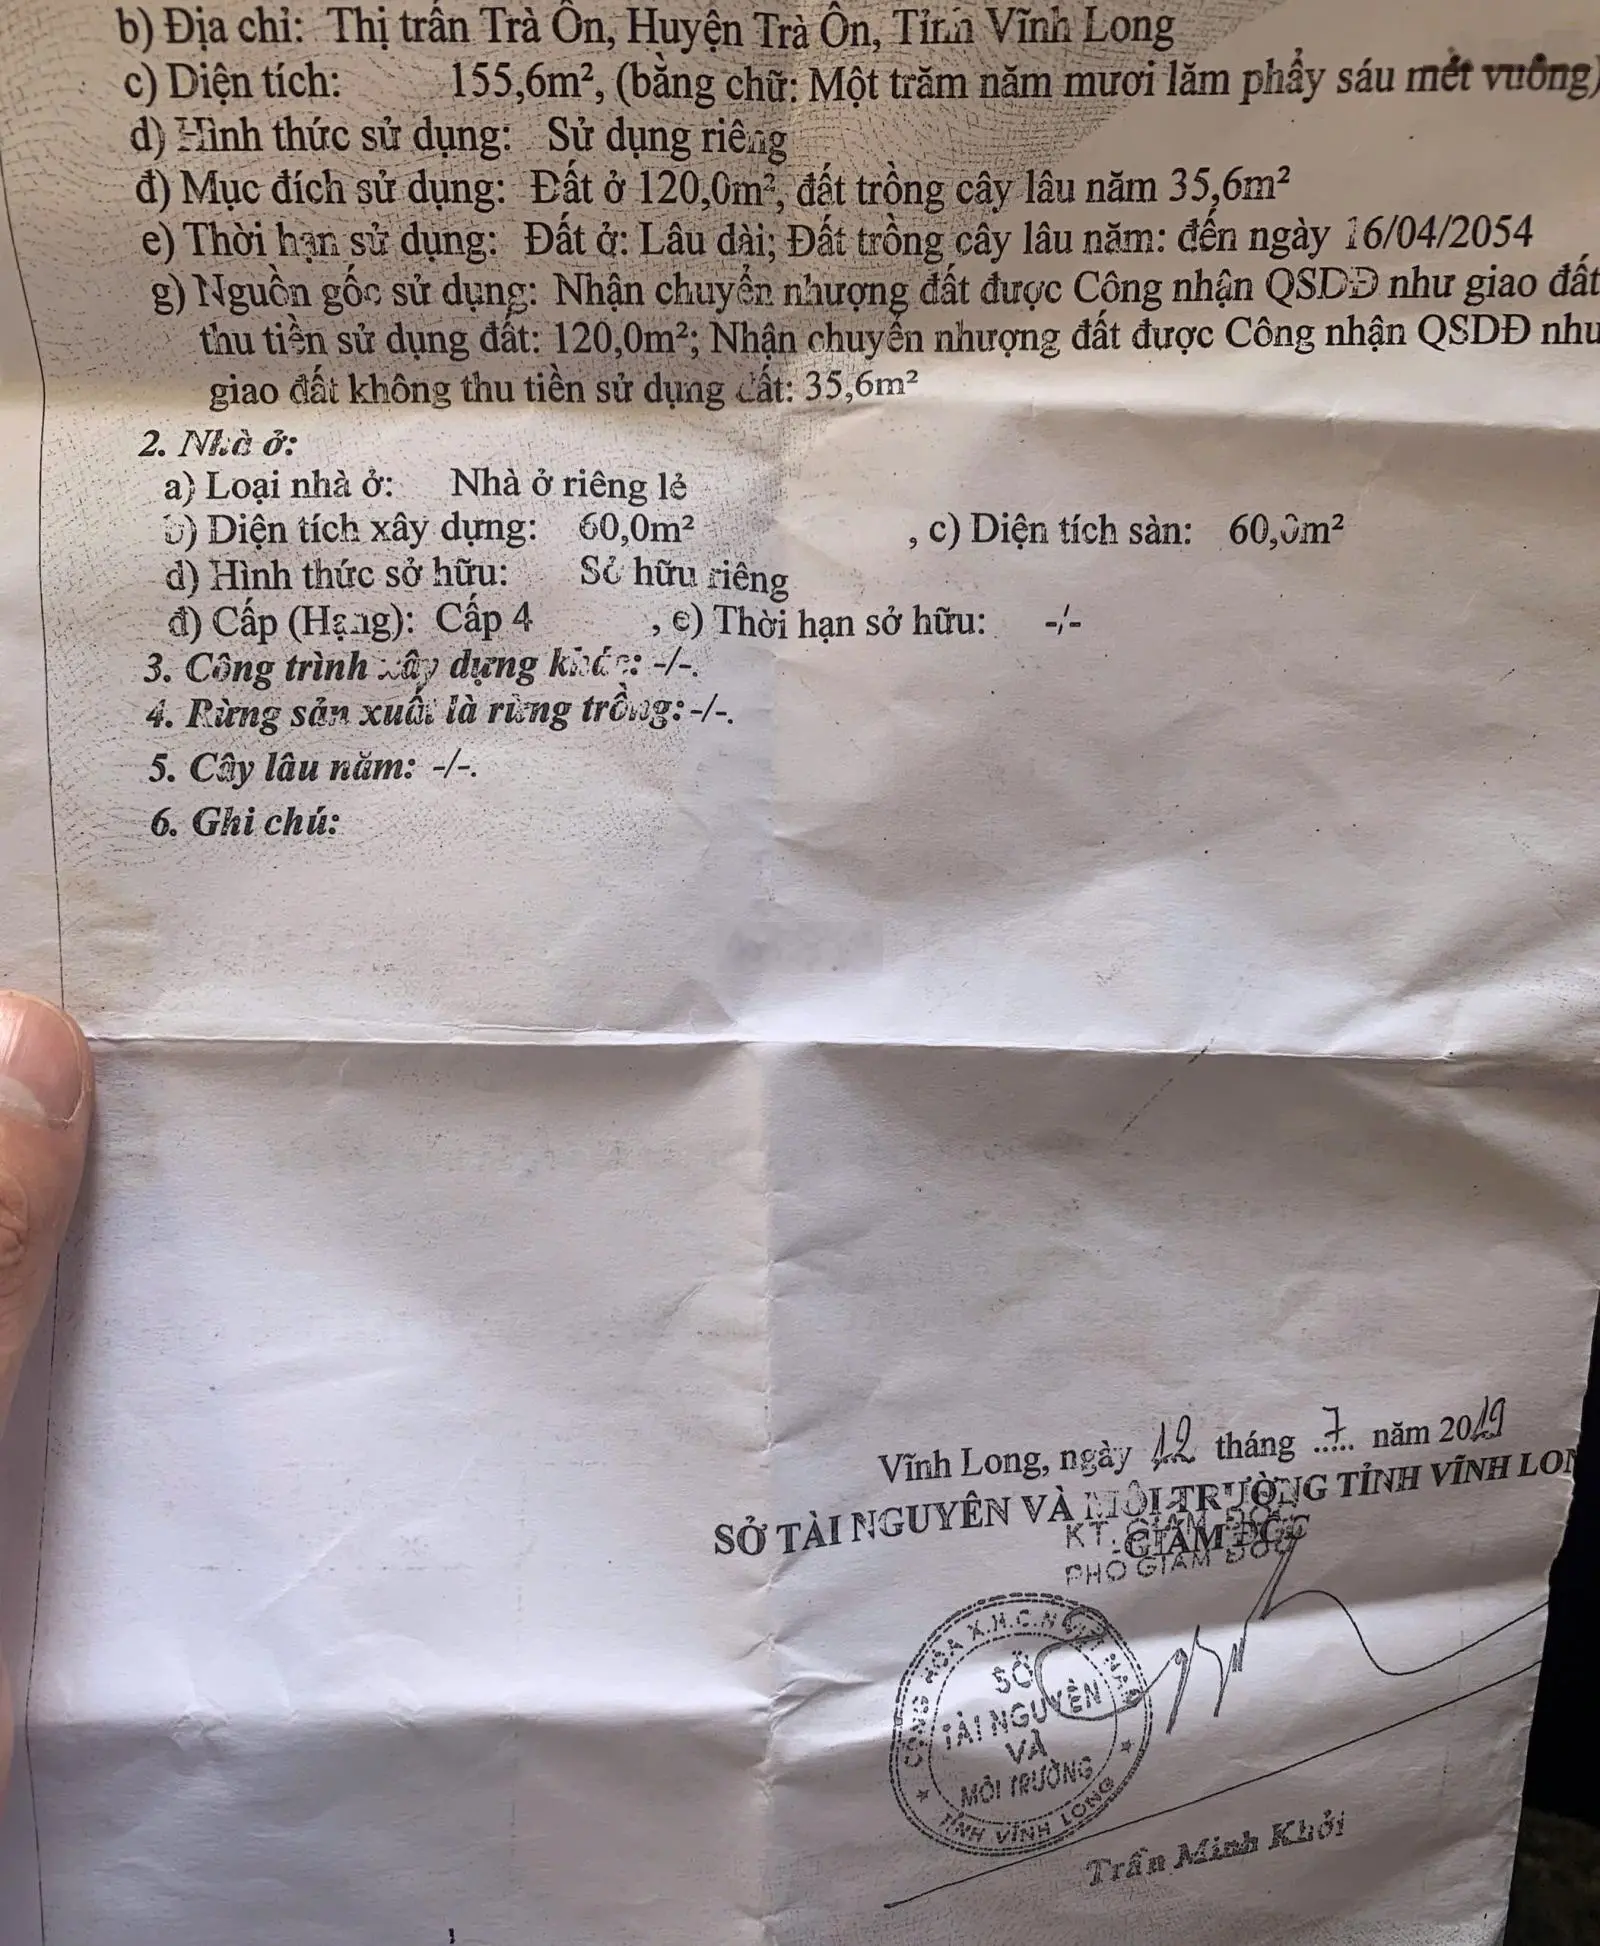 b) Địa chỉ: Thị trấn Trà Ôn, Huyện Trà Ôn, Tỉnh Vĩnh Long
c) Diện tích: 155,6m², (bằng chữ: Một trăm năm mươi lăm phẩy sáu mét vuông)
d) Hình thức sử dụng: Sử dụng riêng
đ) Mục đích sử dụng: Đất ở 120,0m², đất trồng cây lâu năm 35,6m²
e) Thời hạn sử dụng: Đất ở: Lâu dài; Đất trồng cây lâu năm: đến ngày 16/04/2054
g) Nguồn gốc sử dụng: Nhận chuyển nhượng đất được Công nhận QSDĐ như giao đất
thu tiền sử dụng đất: 120,0m²; Nhận chuyển nhượng đất được Công nhận QSDĐ như
giao đất không thu tiền sử dụng đất: 35,6m²
2. Nhà ở:
a) Loại nhà ở: Nhà ở riêng lẻ
b) Diện tích xây dựng: 60,0m² , c) Diện tích sàn: 60,0m²
d) Hình thức sở hữu: Sở hữu riêng
đ) Cấp (Hạng): Cấp 4 , e) Thời hạn sở hữu: -/-
3. Công trình xây dựng khác: -/-.
4. Rừng sản xuất là rừng trồng: -/-.
5. Cây lâu năm: -/-.
6. Ghi chú:
Vĩnh Long, ngày 12 tháng 7 năm 2019
SỞ TÀI NGUYÊN VÀ MÔI TRƯỜNG TỈNH VĨNH LON
KT. GIÁM ĐỐC
GIÁM ĐỐC
PHÓ GIÁM ĐỐC
CỘNG HÒA X.H.C.N VIỆT NAM
SỞ
TÀI NGUYÊN
VÀ
MÔI TRƯỜNG
TỈNH VĨNH LONG
Trần Minh Khởi